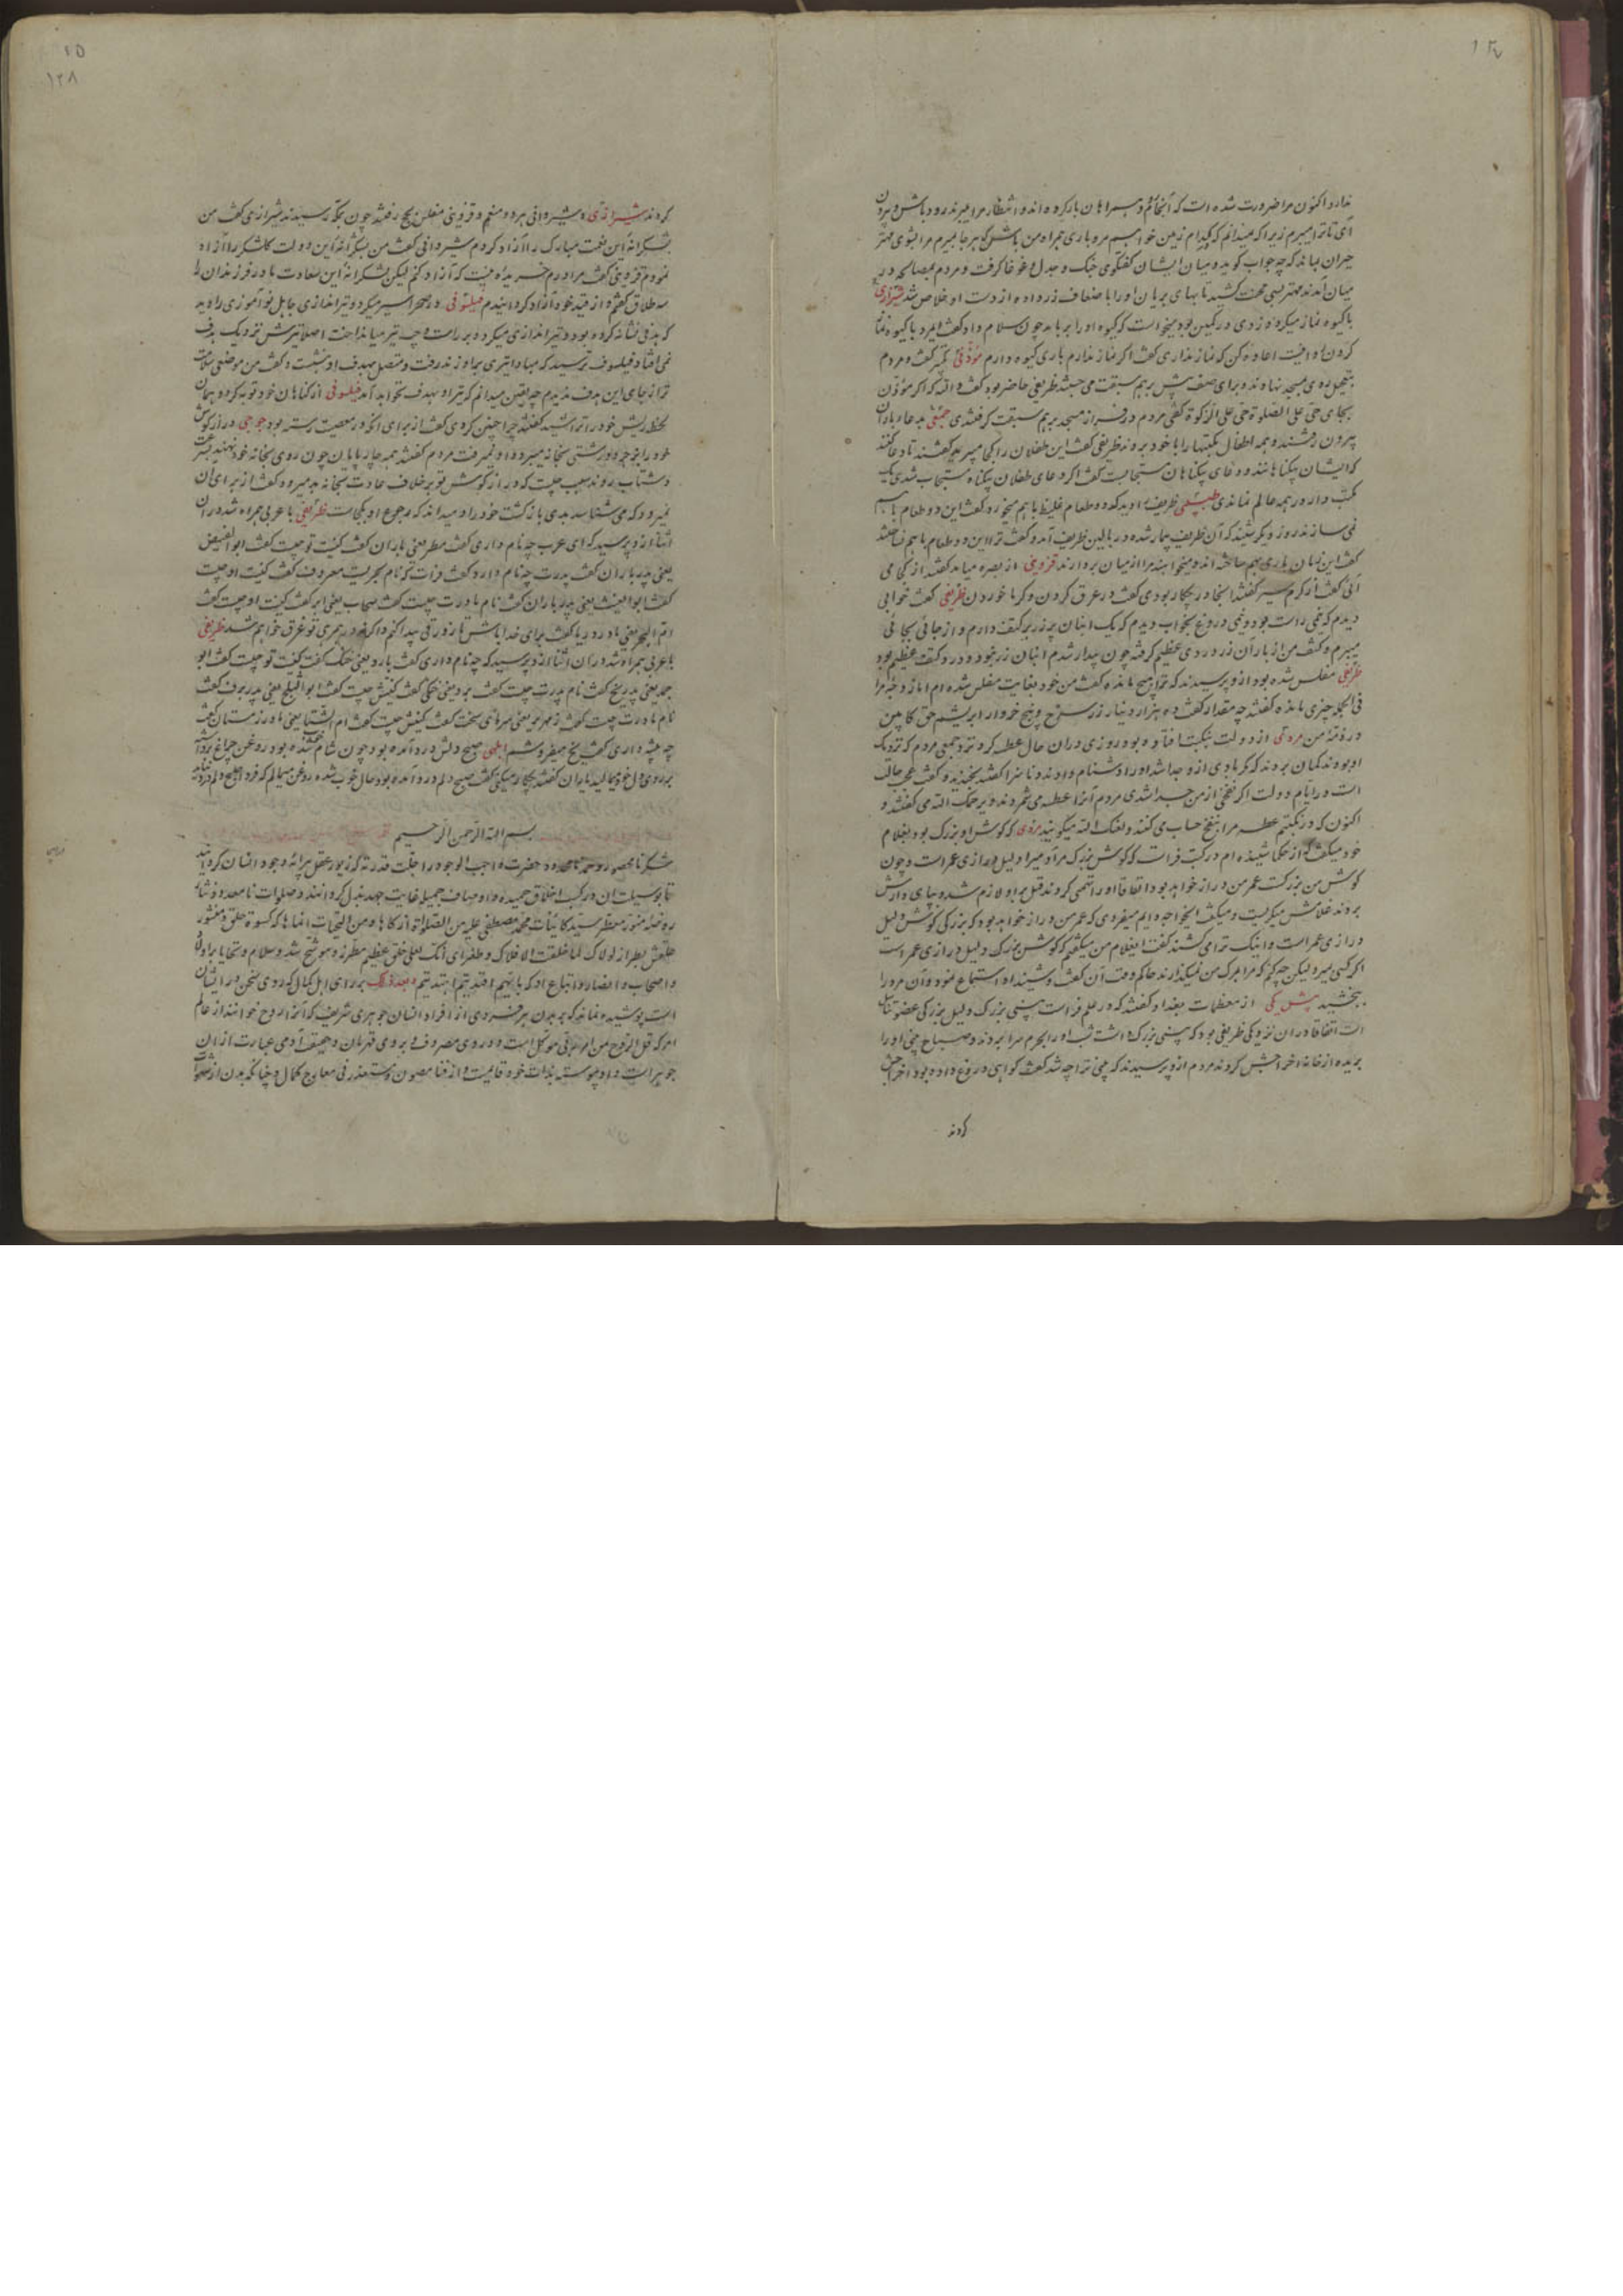 ۱۲۷
ندارد اکنون مرا ضرورت شده است که آنجا گم و پسرا هان بار کرده اند و انتظار مرا میبرند زود باش و برون
آی تا ترا ببرم زیرا که نمیدانم که کدام زمین خواهم مرد باری همراه من باش که هر جا بمیرم مرا بشوی مهتر
حیران بماند که چه جواب گوید و میان ایشان گفتگوی جنک و جدل و غوغا گرفت و مردم بمصالحه در
میان آمدند مهتر بسی محنت کشید تا بهای بریان او را با ضعاف زر داده از دست او خلاص شد شیرازی
با کیوه نماز میکرد دزدی در کمین بود میخواست که کیوه او را برباید چون سلام داد گفت ای مرد با کیوه نماز
کردن روا نیست اعاده کن که نماز نداری گفت اکر نماز ندارم باری کیوه دارم مؤذنی تکبیر گفت و مردم
بتعجیل روی بمسجد نهادند و برای صف پیش بر هم سبقت می جستند ظریفی حاضر بود گفت والله که اکر مؤذن
بجای حی علی الصلوة حی علی الزکوة گفتی مردم در فرار از مسجد بر هم سبقت گرفتندی جمعی بدعاء باران
بیرون رفتند و همه اطفال مکتبها را با خود بردند ظریفی گفت این طفلان را کجا میبرید گفتند تا دعا کنند
که ایشان بیکناهانند و دعای بیکناهان مستجابست گفت اکر دعای طفلان بیکناه مستجاب شدی یک
مکتب دار در همه عالم نماندی طبیبی ظریفی را دید که دو طعام غلیظ با هم میخورد گفت این دو طعام با هم
نمی سازند روز دیکر شنید که آن ظریف بیمار شده در بالین ظریف آمد و گفت ترا این دو طعام با هم نساختند
گفت این زمان باری بهم ساخته اند و میخواهند مرا از میان بردارند قزوینی از بصره میامد گفتند از کجا می
آئی گفت از کرم سیر گفتند آنجا در چکار بودی گفت در عرق کردن و کرما خوردن ظریفی گفت خوابی
دیدم که نیمی راست بود و نیمی دروغ بخواب دیدم که یک انبان پر زر بر کتف دارم و از جائی بجائی
میبرم و کتف من از بار آن زر دردی عظیم کرفته چون بیدار شدم انبان زر نبود و درد کتف عظیم بود
ظریفی مفلس شده بود ازو پرسیدند که ترا هیچ مانده گفت من خود بغایت مفلس شده ام اما زوجه مرا
فی الجمله چیزی مانده گفتند چه مقدار گفت ده هزار دینار زر سرخ و پنج خروار ابریشم حق کابین
در ذمه من مردی از دولت بنکبت افتاده بود روزی در آن حال عطسه کرد تند و جمعی مردم که نزدیک
او بودند کمان بردند که کر بادی ازو جدا شد او را دشنام دادند و ناسزا گفتند بخندید و گفت عجب حالت
است در ایام دولت اکر نفخی از من جدا شدی مردم آنرا عطسه می شمردند و یرحمک الله می گفتند و
اکنون که در نکبتم عطسه مرا بنفخ حساب می کنند و لعنک الله میکویند مردی که کوش او بزرک بود بغلام
خود میگفت که از حکما شنیده ام در کتب فراست که کوش بزرک مرد را دلیل درازی عمر است و چون
کوش من بزرکست عمر من دراز خواهد بود اتفاقا او را تهمتی کردند قتل بر او لازم شد و بپای دارش
بردند غلامش میگریست و میگفت ایخواجه دایم میفرمودی که عمر من دراز خواهد بود که بزرکی کوش دلیل
درازی عمر است و اینک ترا می کشند گفت ای غلام من میگفتم که کوش بزرک دلیل درازی عمر است
اکر کسی بمیرد لیکن چه کنم که مرا بمرک من نمیکذارند حاکم وقت آن گفت و شنید او استماع نمود و آن مرد را
ببخشید پیش یکی از معظمات بغداد گفتند که در علم فراست بینی بزرک دلیل بزرکی عضو تناسل
است اتفاقا در آن نزدیکی ظریفی بود که بینی بزرک داشت شب او را بحرم سرا بردند و صباح بینی او را
بریده از خانه اخراجش کردند مردم ازو پرسیدند که بینی ترا چه شد گفت کواهی دروغ داده بود اخراجش
کردند
۱۵
۱۲۸
کردند شیرازی و شیروانی هر دو منعم و قزوینی مفلس بحج رفتند چون بمکه رسیدند شیرازی گفت من
بشکرانه این نعمت مبارک را آزاد کردم شیروانی گفت من بشکرانه این دولت کلشکر را آزاد
نمودم قزوینی گفت مرا درم خریده نیست که آزاد کنم لیکن بشکرانه این سعادت مادر فرزندان را
سه طلاق گفتم و از قید خود آزاد کردانیدم فیلسوفی در صحرا سیر میکرد و تیراندازی جاهل نوآموزی را دید
که هدفی نشانه کرده بود و تیراندازی میکرد و بر راست و چپ تیر میانداخت اصلا تیرش نزدیک هدف
نمی افتاد فیلسوف ترسید که مبادا تیری بر او زند رفت و متصل بهدف او نشست و گفت من موضعی سلامت
تر از جای این هدف ندیدم چه یقین میدانم که تیر او بهدف نخواهد آمد فیلسوفی از کناهان خود توبه کرد و همان
لحظه ریش خود را تراشید گفتند چرا چنین کردی گفت از برای آنکه در معصیت رسته بود جوحی دراز کوش
خود را بزجر و درشتی بخانه میبرد و او نمیرفت مردم گفتند همه چارپایان چون روی بخانه خود نهند بسرعت
و شتاب روند سبب چیست که دراز کوش تو بر خلاف عادت بخانه بد میرود گفت از برای آن
نمیرود که می شناسد بدی بازکشت خود را و میداند که رجوع او بکجاست ظریفی با عربی همراه شد در آن
اثنا ازو پرسید که ای عرب چه نام داری گفت مطر یعنی باران گفت کنیت تو چیست گفت ابو الفیض
یعنی پدر باران گفت پدرت چه نام دارد گفت فرات که نام بحریست معروف گفت کنیت او چیست
گفت ابو الغیث یعنی پدر باران گفت نام مادرت چیست گفت سحاب یعنی ابر گفت کنیت او چیست گفت
ام البحر یعنی مادر دریا گفت برای خدا باش تا زورقی پیدا کنم و اکر نه در همرهی تو غرق خواهم شد ظریفی
با عربی همراه شد در آن اثنا ازو پرسید که چه نام داری گفت بارد یعنی خنک گفت کنیت تو چیست گفت ابو
جمد یعنی پدر یخ گفت نام پدرت چیست گفت برد یعنی خنکی گفت کنیتش چیست گفت ابو الثلج یعنی پدر برف گفت
نام مادرت چیست گفت زمهریر یعنی سرمای سخت گفت کنیتش چیست گفت ام الشتا یعنی مادر زمستان گفت
چه پیشه داری گفت یخ میفروشم ابلهی صبح دلش درد آمده بود چون شام شد روغن چراغ برداشت
بر روی دل خود میمالید یاران گفتند چکار میکنی گفت صبح دلم درد آمده بود حال خوب شده روغن میمالم که فردا صبح دلم درد نیاید
بسم الله الرحمن الرحیم
شکر نا محصور و حمد نا محدود حضرت واجب الوجود را جلت قدرته که زیور عقل پیرایه وجود انسان کردانید
تا بوسیلت آن در کسب اخلاق حمیده و اوصاف جمیله غایت جهد بذل کردانند و صلوات نا معدود نثار
روضه منور معطر سید کاینات محمد مصطفی علیه من الصلوات ازکاها و من التحیات انماها که کسوة خلق و منشور
خلقش بطراز لولاک لما خلقت الافلاک و طغرای انک لعلی خلق عظیم مطرز و موشح شد و سلام و تحایا بر اولاد
و اصحاب و انصار و اتباع او که بایهم اقتدیتم اهتدیتم و بعد ذلک بر رای اهل کمال که روی سخن در ایشان
است پوشیده نماند که بر بدن هر فردی از افراد انسان جوهری شریف که آنرا روح خوانند از عالم
امر که قل الروح من امر ربی موکل است و در وی مصروف و بر وی قهرمان و حقیقت آدمی عبارت از آن
جوهر است و او پیوسته بذات خود قایمست و از فنا مصون و مستعد ترقی معارج کمال و چنانکه بدن از شهوات